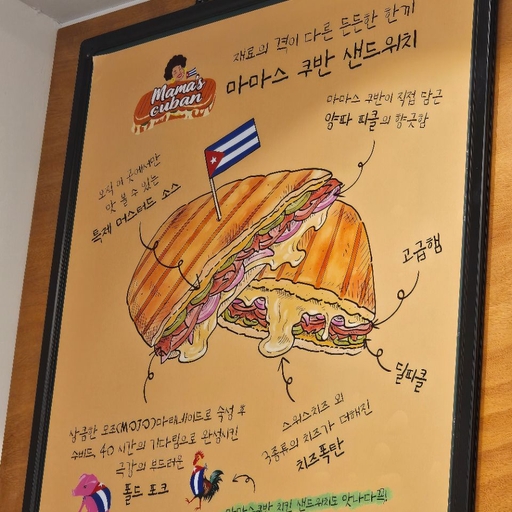 재료의 격이 다른 든든한 한끼
마마스 쿠반 샌드위치
Mama's
cuban
마마스 쿠반이 직접 담근
양파 피클의 향긋함
오직 이 곳에서만
맛 볼 수 있는
특제 머스터드 소스
고급햄
딜피클
상큼한 모조(MOJO)마리네이드로 숙성 후
수비드, 40 시간의 기다림으로 완성시킨
극강의 부드러운
풀드 포크
스위스치즈 외
3종류의 치즈가 더해진
치즈폭탄
마마스쿠반 치킨 샌드위치도 맛나다꼬!